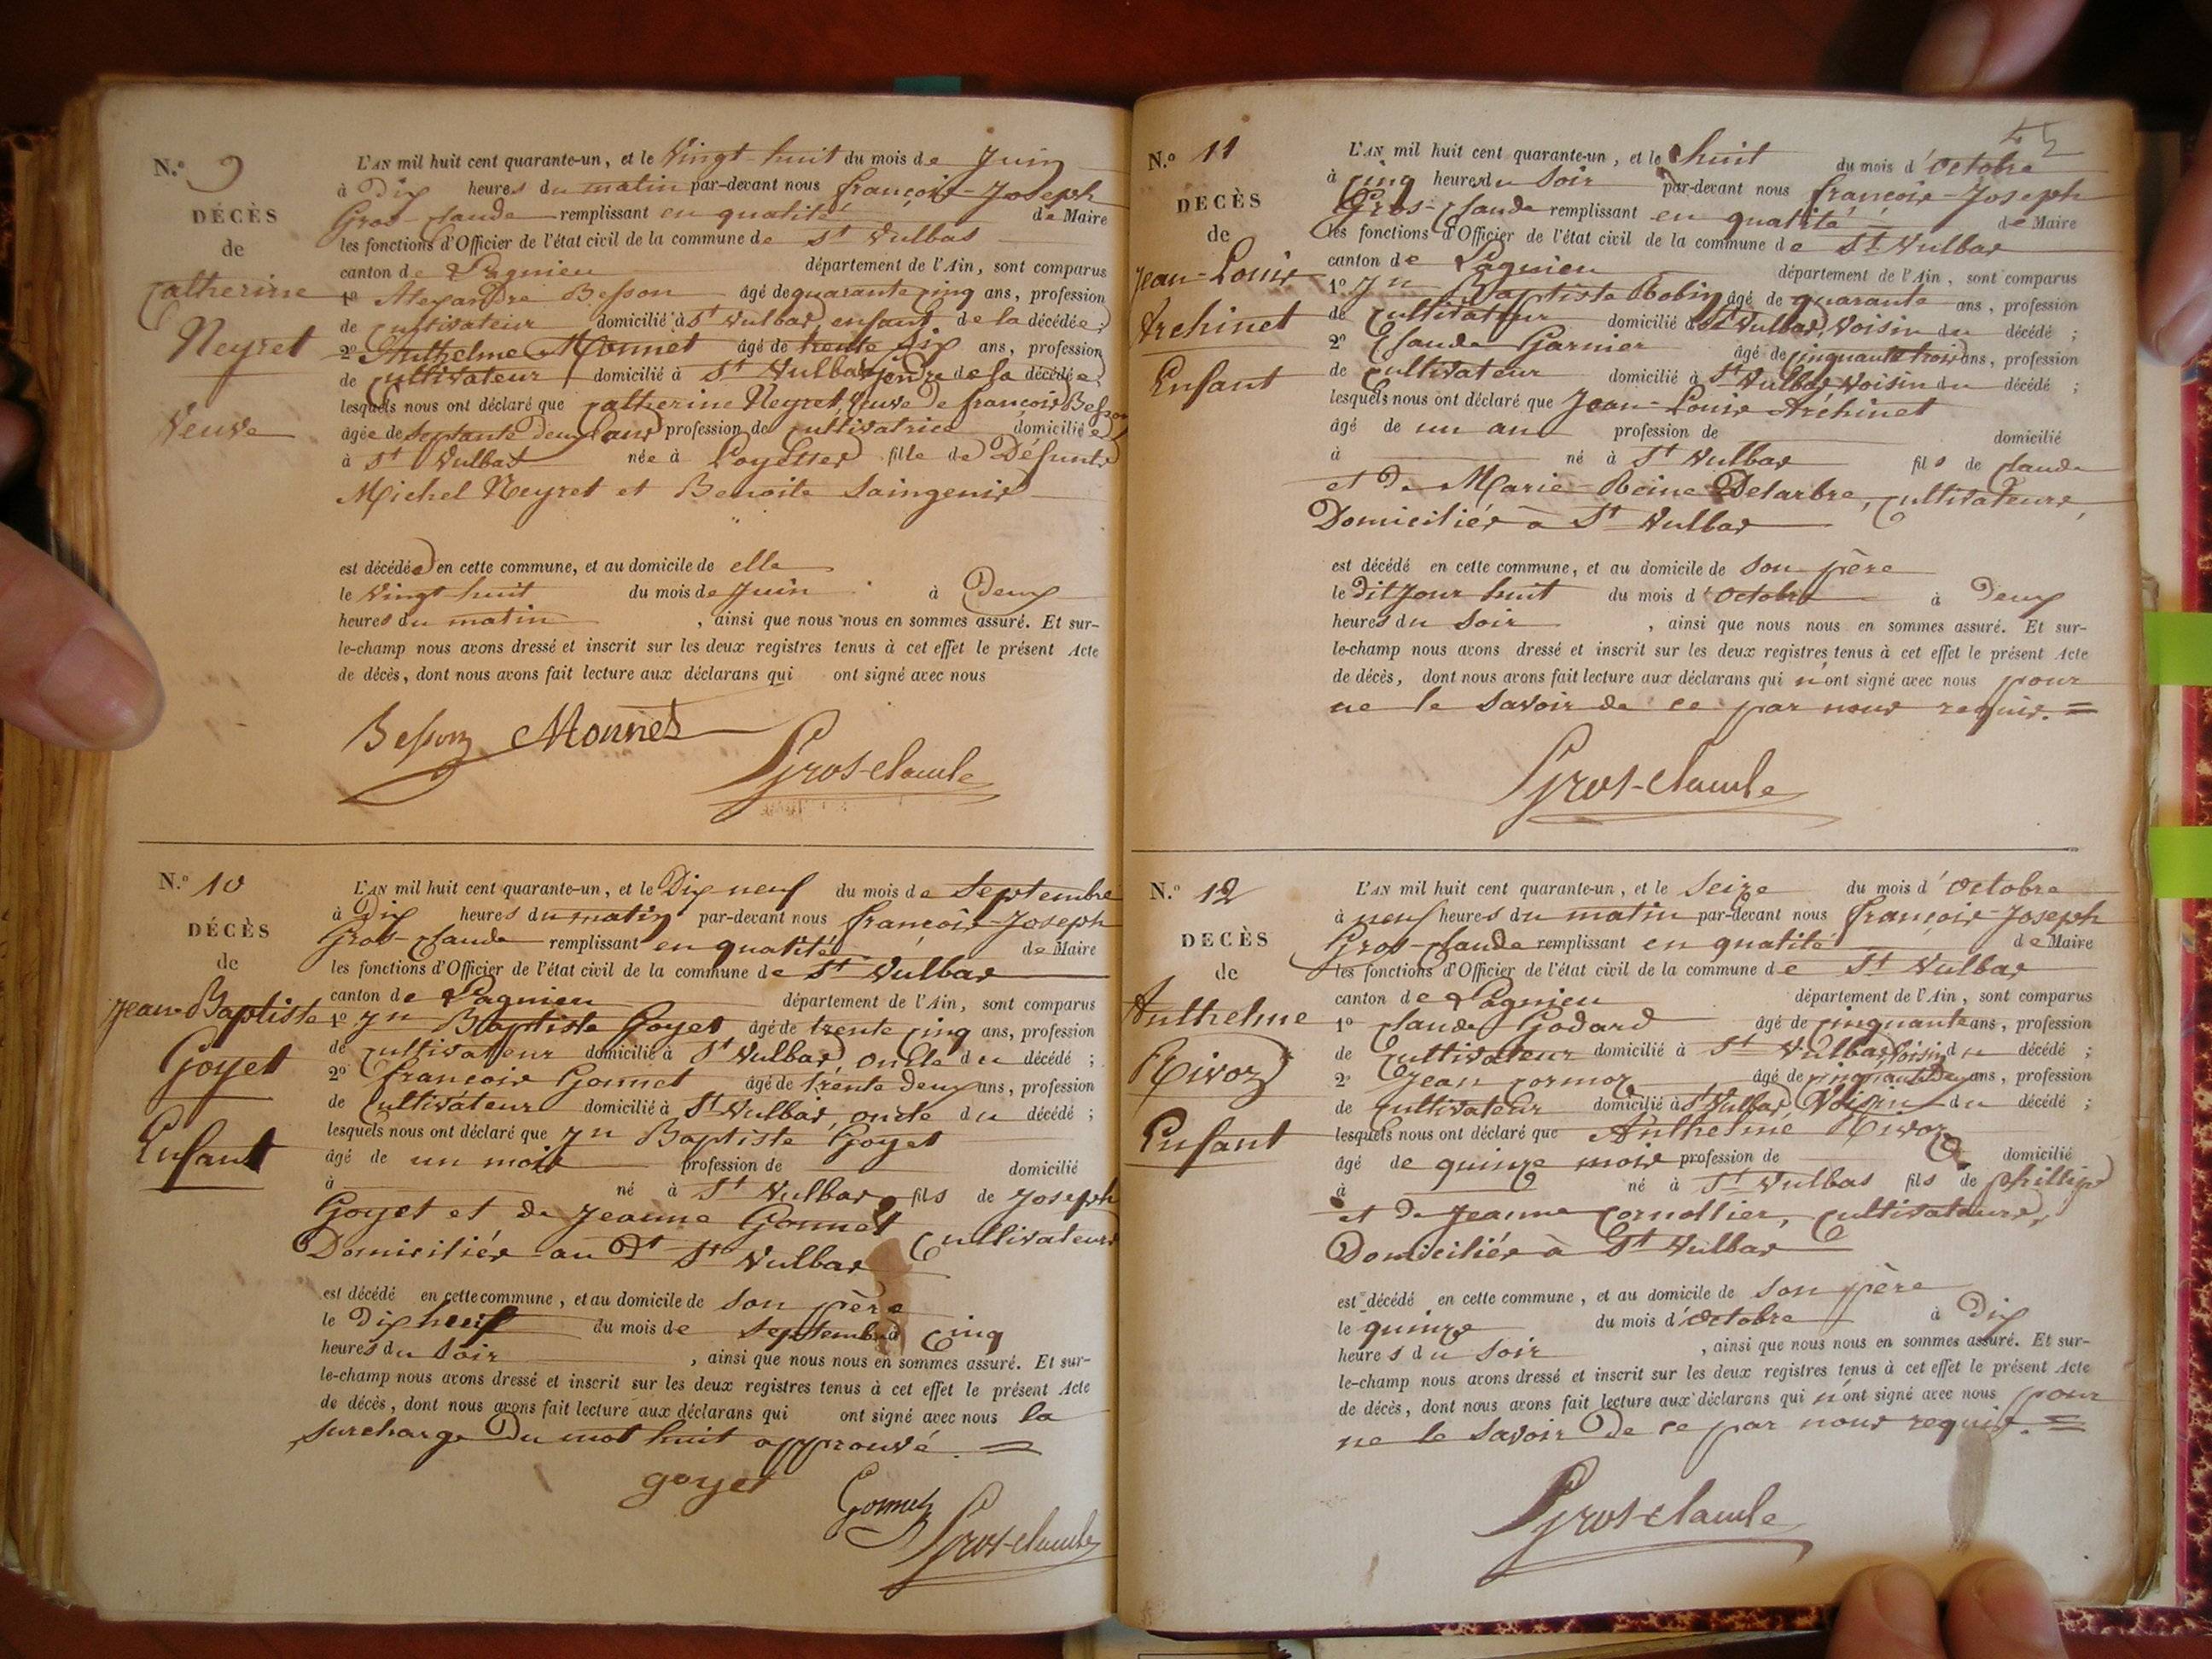 N.o 9
DÉCÈS
de
Catherine
Neyret
Veuve
L'AN mil huit cent quarante-un, et le Vingt-huit du mois de Juin
à Dix heures du matin par-devant nous françois-Joseph
Gros-Claude remplissant en qualité de Maire
les fonctions d'Officier de l'état civil de la commune de St Vulbas
canton de Lagnieu département de l'Ain, sont comparus
1o Alexandre Besson âgé de quarante cinq ans, profession
de Cultivateur domicilié à St Vulbas, enfant de la décédée;
2o Anthelme Monnet âgé de trente six ans, profession
de Cultivateur domicilié à St Vulbas, gendre de la décédée;
lesquels nous ont déclaré que Catherine Neyret, Veuve de françois Besson
âgée de septante deux ans profession de Cultivatrice domiciliée
à St Vulbas née à Loyettes fille de Défunts
Michel Neyret et Benoite Saingenis
est décédée en cette commune, et au domicile de elle
le Vingt-huit du mois de Juin à Deux
heures du matin, ainsi que nous nous en sommes assuré. Et sur-
le-champ nous avons dressé et inscrit sur les deux registres tenus à cet effet le présent Acte
de décès, dont nous avons fait lecture aux déclarans qui ont signé avec nous
Besson Monnet
Gros-claude
N.o 10
DÉCÈS
de
Jean-Baptiste
Goyet
Enfant
L'AN mil huit cent quarante-un, et le Dix neuf du mois de Septembre
à Dix heures du matin par-devant nous françois-Joseph
Gros-Claude remplissant en qualité de Maire
les fonctions d'Officier de l'état civil de la commune de St Vulbas
canton de Lagnieu département de l'Ain, sont comparus
1o Jn Baptiste Goyet âgé de trente cinq ans, profession
de Cultivateur domicilié à St Vulbas, oncle du décédé;
2o françois Gonnet âgé de trente deux ans, profession
de Cultivateur domicilié à St Vulbas, oncle du décédé;
lesquels nous ont déclaré que Jn Baptiste Goyet
âgé de un mois profession de domicilié
à né à St Vulbas fils de Joseph
Goyet et de Jeanne Gonnet Cultivateurs
Domiciliés au Dt St Vulbas
est décédé en cette commune, et au domicile de son père
le Dix huit du mois de Septembre à Cinq
heures du soir, ainsi que nous nous en sommes assuré. Et sur-
le-champ nous avons dressé et inscrit sur les deux registres tenus à cet effet le présent Acte
de décès, dont nous avons fait lecture aux déclarans qui ont signé avec nous la
surcharge Du mot huit approuvé. =
goyet
Gonnet
Gros-claude
N.o 11
DECÈS
de
Jean-Louis
Archinet
Enfant
L'AN mil huit cent quarante-un, et le huit du mois d'octobre
à Cinq heures du Soir par-devant nous françois-Joseph
Gros-Claude remplissant en qualité de Maire
les fonctions d'Officier de l'état civil de la commune de St Vulbas
canton de Lagnieu département de l'Ain, sont comparus
1o Jn Baptiste Robin âgé de quarante ans, profession
de Cultivateur domicilié à St Vulbas, Voisin du décédé;
2o Claude Garnier âgé de cinquante trois ans, profession
de Cultivateur domicilié à St Vulbas, Voisin du décédé;
lesquels nous ont déclaré que Jean-Louis Archinet
âgé de un an profession de domicilié
à né à St Vulbas fils de Claude
et de Marie-Reine Delarbre, Cultivateurs,
Domiciliés à St Vulbas
est décédé en cette commune, et au domicile de son père
le dit Jour huit du mois d'octobre à Deux
heures du Soir, ainsi que nous nous en sommes assuré. Et sur-
le-champ nous avons dressé et inscrit sur les deux registres tenus à cet effet le présent Acte
de décès, dont nous avons fait lecture aux déclarans qui n'ont signé avec nous pour
ne le savoir de ce par nous requis. =
Gros-claude
N.o 12
DECÈS
de
Anthelme
Rivoz
Enfant
L'AN mil huit cent quarante-un, et le Seize du mois d'octobre
à neuf heures du matin par-devant nous françois-Joseph
Gros-Claude remplissant en qualité de Maire
les fonctions d'Officier de l'état civil de la commune de St Vulbas
canton de Lagnieu département de l'Ain, sont comparus
1o Claude Godard âgé de cinquante ans, profession
de Cultivateur domicilié à St Vulbas, Voisin du décédé;
2o Jean Cormoz âgé de cinquante Deux ans, profession
de Cultivateur domicilié à St Vulbas, Voisin du décédé;
lesquels nous ont déclaré que Anthelme Rivoz
âgé de quinze mois profession de domicilié
à né à St Vulbas fils de phillipe
et de Jeanne Cornollier, Cultivateurs,
Domiciliés à St Vulbas
est décédé en cette commune, et au domicile de son père
le quinze du mois d'octobre à Dix
heures du soir, ainsi que nous nous en sommes assuré. Et sur-
le-champ nous avons dressé et inscrit sur les deux registres tenus à cet effet le présent Acte
de décès, dont nous avons fait lecture aux déclarans qui n'ont signé avec nous pour
ne le savoir De ce par nous requis. =
Gros-claude